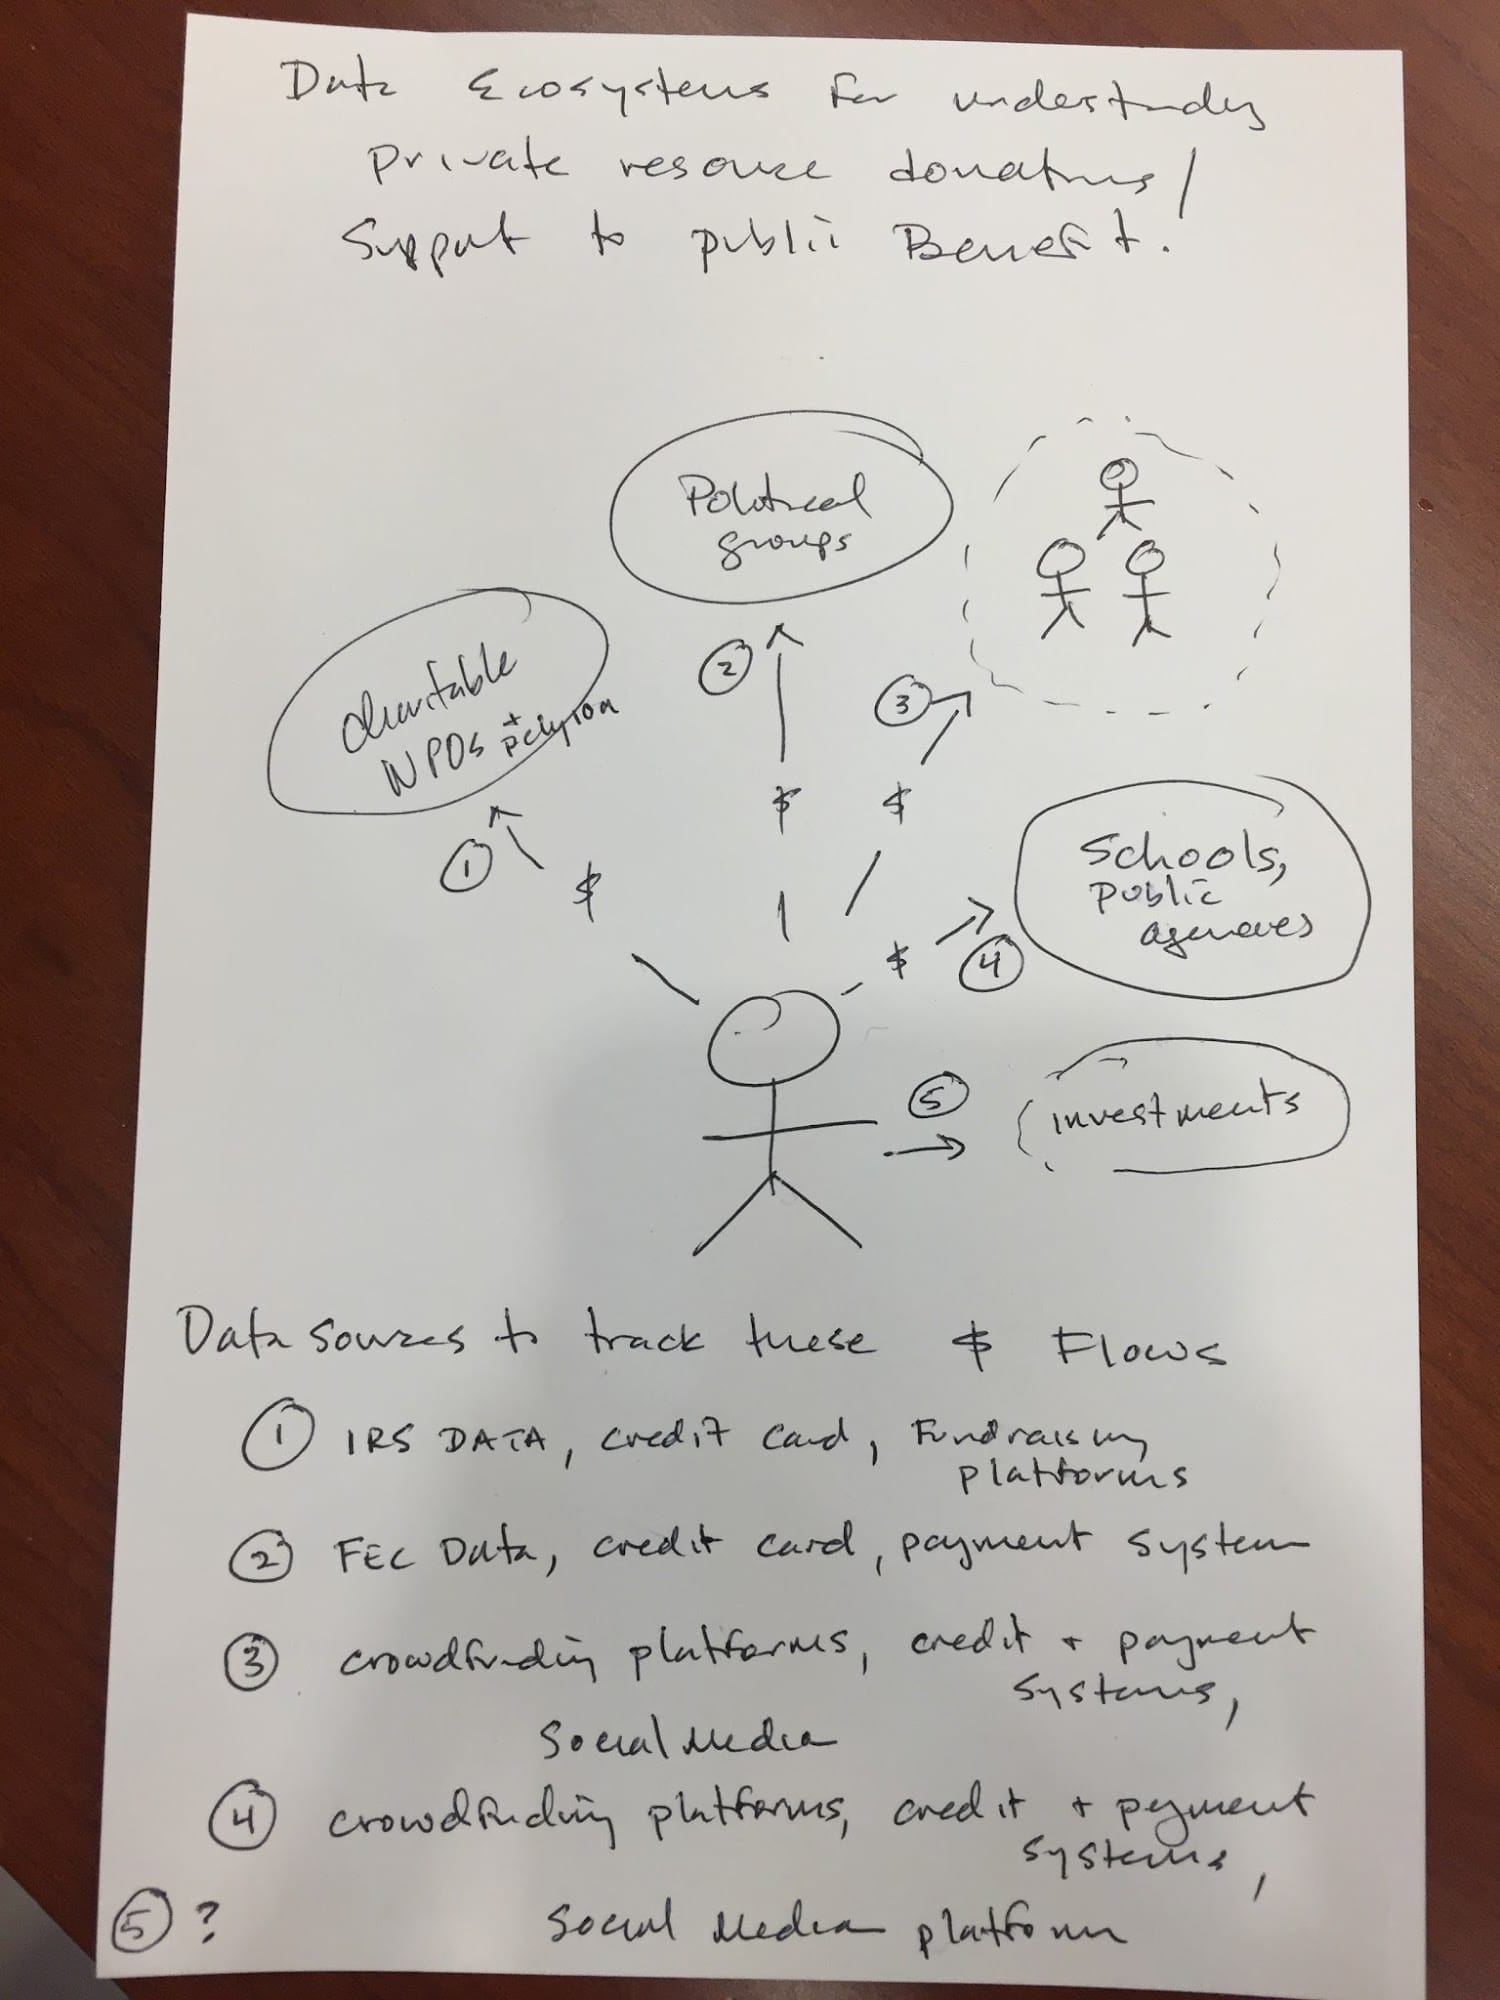 Data Ecosystems for understanding
private resource donations/
Support to public Benefit.
Political
groups
charitable
NPOs + religion
2
3
$
$
1
$
Schools,
public
agencies
$
4
5
investments
Data sources to track these $ Flows
1 IRS DATA, credit card, Fundraising
platforms
2 FEC Data, credit card, payment system
3 crowdfunding platforms, credit + payment
systems,
Social Media
4 crowdfunding platforms, credit + payment
systems,
5 ? Social Media platform